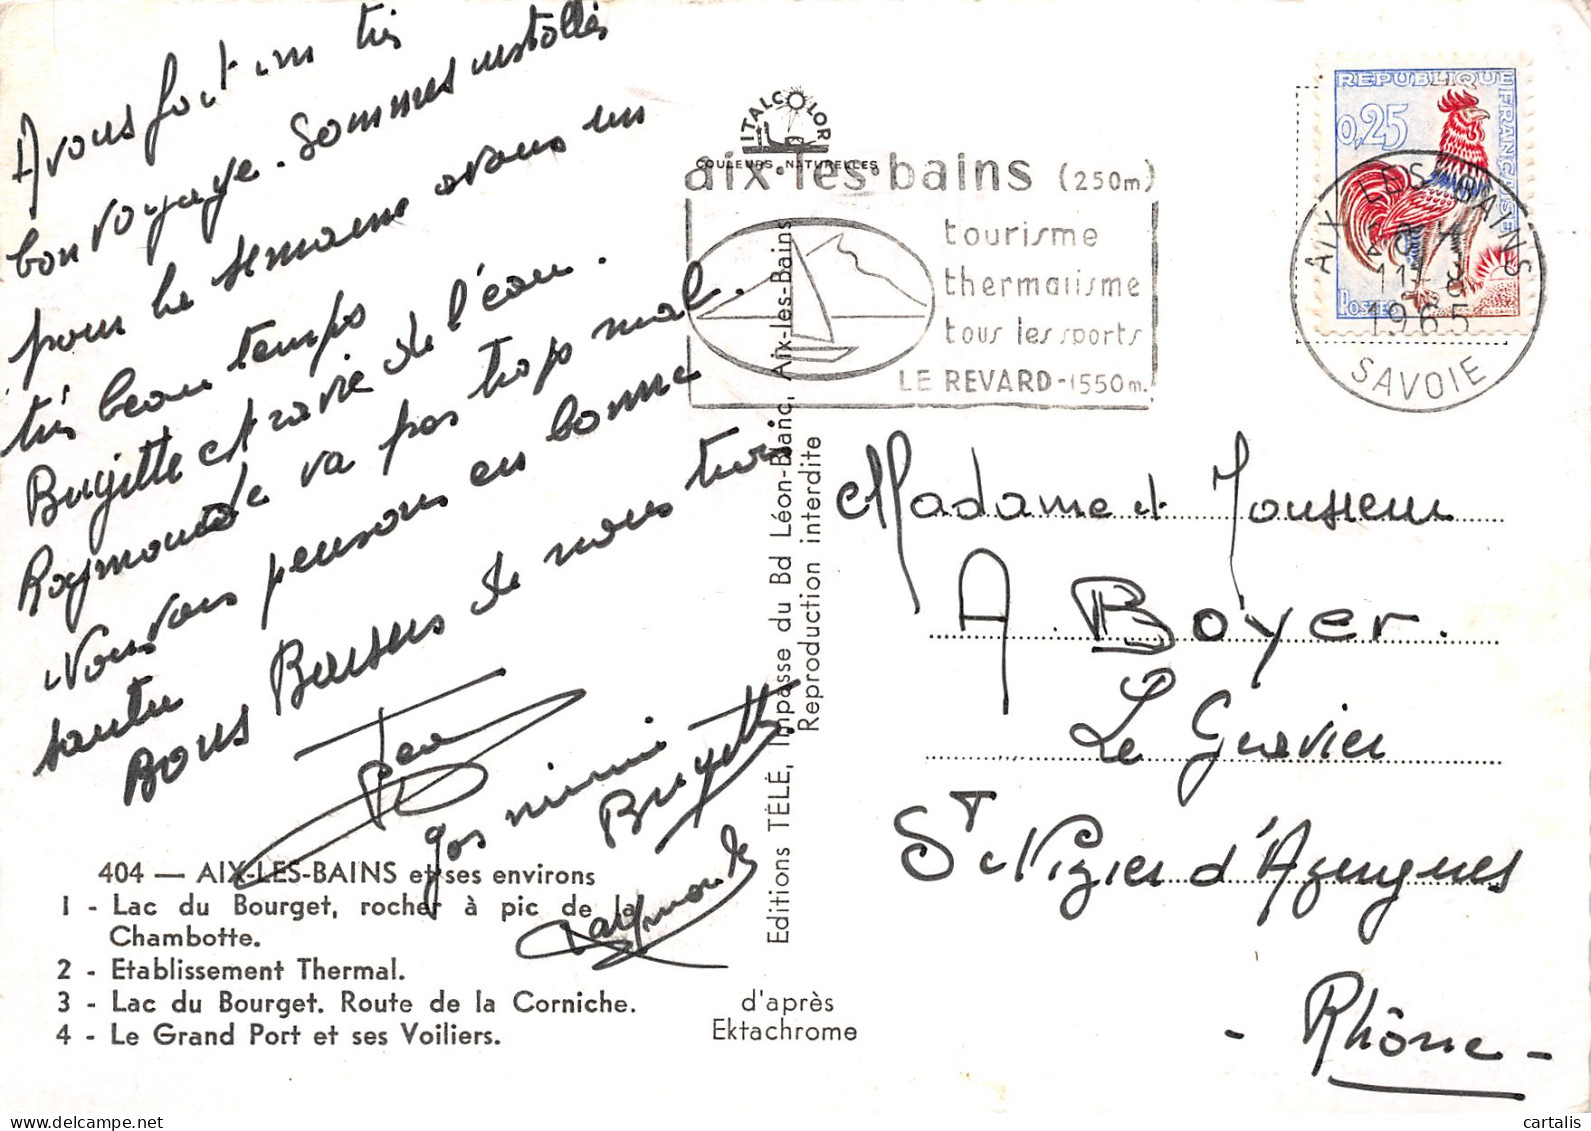 Avons fait un très
bon voyage. Sommes installés
pour la semaine avons un
très beau temps
Brigitte et ravie de l'eau.
Raymonde va pas trop mal.
Nous vous pensons en bonne
santée
Bons Baisers de nous tous
Jean
gos mimi
Brigitte
Raymonde
404 — AIX-LES-BAINS et ses environs
1 - Lac du Bourget, rocher à pic de la
Chambotte.
2 - Etablissement Thermal.
3 - Lac du Bourget. Route de la Corniche.
4 - Le Grand Port et ses Voiliers.
d'après
Ektachrome
Editions TÉLÉ, Impasse du Bd Léon-Blanc, Aix-les-Bains
Reproduction interdite
ITALCOLOR
COULEURS NATURELLES
aix les bains (250m)
tourisme
thermalisme
tous les sports
LE REVARD-1550m.
REPUBLIQUE FRANÇAISE
0,25
POSTES
AIX LES BAINS
1965
SAVOIE
Madame et Monsieur
A. Boyer.
Le Gravier
St Nizier d'Azergues
- Rhône -
cartalis.com